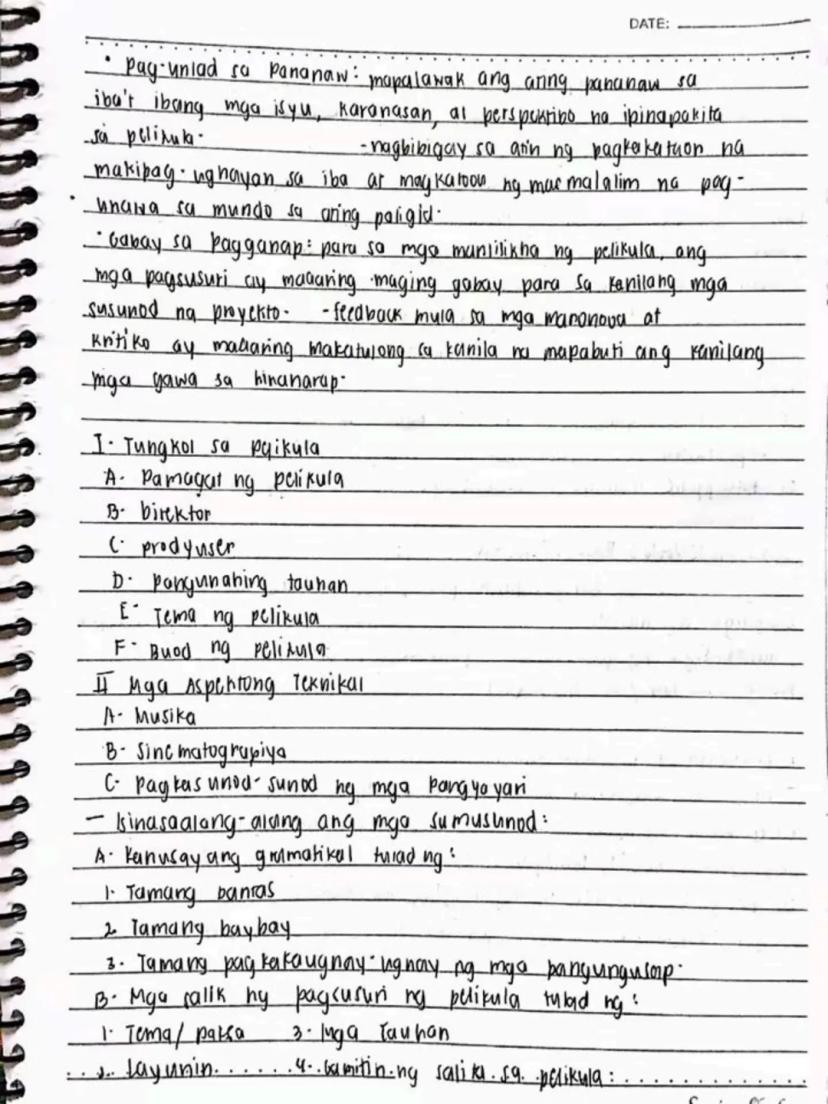 DATE:
• Pag-unlad sa Pananaw: mapalawak ang ating pananaw sa
iba't ibang mga isyu, karanasan, at perspektibo na ipinapakita
sa pelikula. -nagbibigay sa atin ng pagkakataon na
makipag-ugnayan sa iba at magkaroon ng mas malalim na pag-
unawa sa mundo sa ating paligid.
• Gabay sa Pagganap: para sa mga manlilikha ng pelikula, ang
mga pagsusuri ay maaaring maging gabay para sa kanilang mga
susunod na proyekto. -feedback mula sa mga manonood at
kritiko ay maaaring makatulong sa kanila na mapabuti ang kanilang
mga gawa sa hinaharap.
I. Tungkol sa pelikula
A. Pamagat ng pelikula
B. Direktor
C. prodyuser
D. pangunahing tauhan
E. Tema ng pelikula
F. Buod ng pelikula
II Mga Aspektong Teknikal
A. Musika
B. Sinematograpiya
C. Pagkasunod-sunod ng mga Pangyayari
- isinasaalang-alang ang mga sumusunod:
A. Kahusayang gramatikal tulad ng:
1. Tamang bantas
2. Tamang baybay
3. Tamang pagkakaugnay-ugnay ng mga pangungusap.
B. Mga salik ng pagsusuri ng pelikula tulad ng:
1. Tema/ paksa 3. Mga Tauhan
2. Layunin 4. Gamitin ng salita sa pelikula: